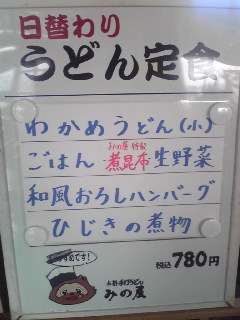 日替わり
うどん定食
わかめうどん(小)
みの屋 特製
ごはん 煮昆布 生野菜
和風おろしハンバーグ
ひじきの煮物
税込 780円
すすめです!
みの屋